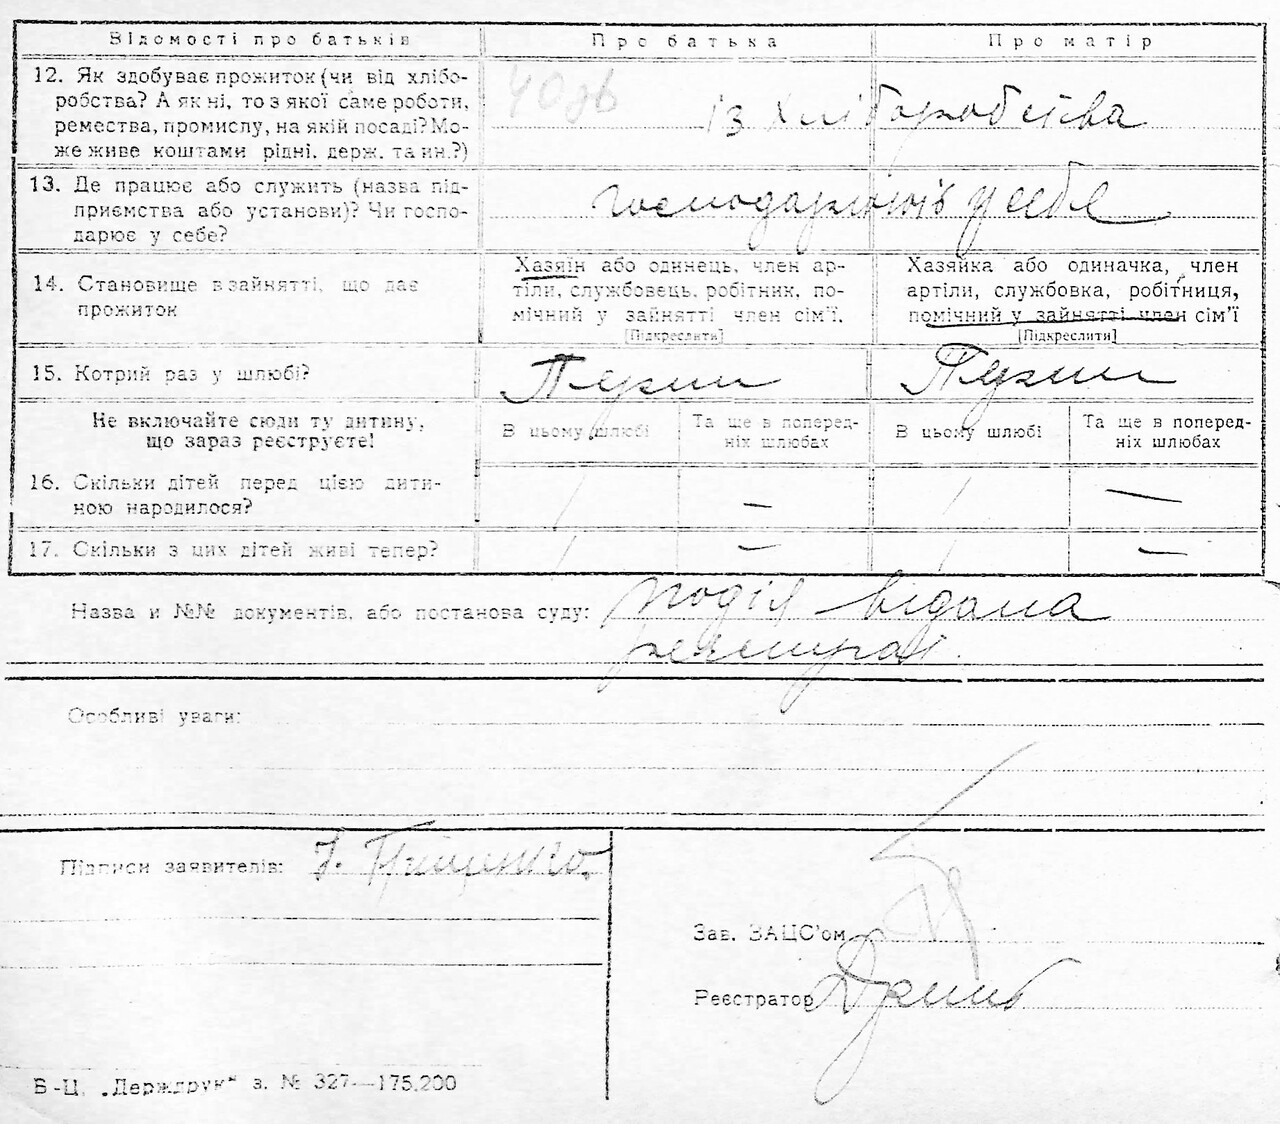 Відомості про батьків
Про батька
Про матір
12. Як здобуває прожиток (чи від хлібо-
робства? А як ні, то з якої саме роботи,
ремества, промислу, на якій посаді? Мо-
же живе коштами рідні, держ. та ин.?)
із хліборобства
13. Де працює або служить (назва під-
приємства або установи)? Чи госпо-
дарює у себе?
господарюють у себе
14. Становище в зайнятті, що дає
прожиток
Хазяїн або одинець, член ар-
тіли, службовець, робітник, по-
мічний у зайнятті член сім’ї.
[Підкреслити]
Хазяйка або одиначка, член
артіли, службовка, робітниця,
помічний у зайнятті член сім’ї
[Підкреслити]
15. Котрий раз у шлюбі?
Перший
Перший
Не включайте сюди ту дитину,
що зараз реєструєте!
В цьому шлюбі
Та ще в поперед-
ніх шлюбах
В цьому шлюбі
Та ще в поперед-
ніх шлюбах
16. Скільки дітей перед цією дити-
ною народилося?
1 — 1 —
17. Скільки з цих дітей живі тепер?
1 — 1 —
Назва и №№ документів, або постанова суду: подія відома
реєстраторі
Особливі уваги:
Підписи заявителів:
Зав. ЗАЦС’ом
Реєстратор
Б-Ц. „Держдрук“ з. № 327—175.200